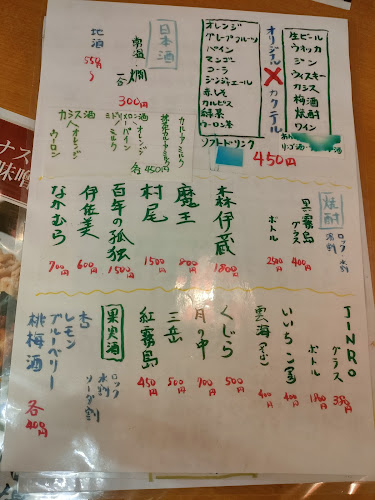 オリジナル✕カクテル
生ビール
ウォッカ
ジン
ウィスキー
カシス
梅酒
焼酎
ワイン
オレンジ
グレープフルーツ
パイン
マンゴー
コーラ
ジンジャエール
赤しそ
カルピス
緑茶
ウーロン茶
ソフトドリンク
450円
日本酒
常温
燗
一合
300円
地酒
550円〜
カルーアミルク
各450円
オレンジ
パイン
ミルク
カシス酒
オレンジ
ウーロン
焼酎
ロック
水割
湯割
黒霧島
グラス
400円
ボトル
2500円
森伊蔵
1800円
魔王
800円
村尾
1500円
百年の孤独
1500円
伊佐美
600円
なかむら
700円
JINRO
グラス
350円
ボトル
いいちこ(麦)
400円
雲海(そば)
400円
くじら
500円
月の中
700円
三岳
500円
紅霧島
450円
果実酒
ロック
水割
ソーダ割
杏
レモン
ブルーベリー
桃梅酒
各400円
ナス
味噌